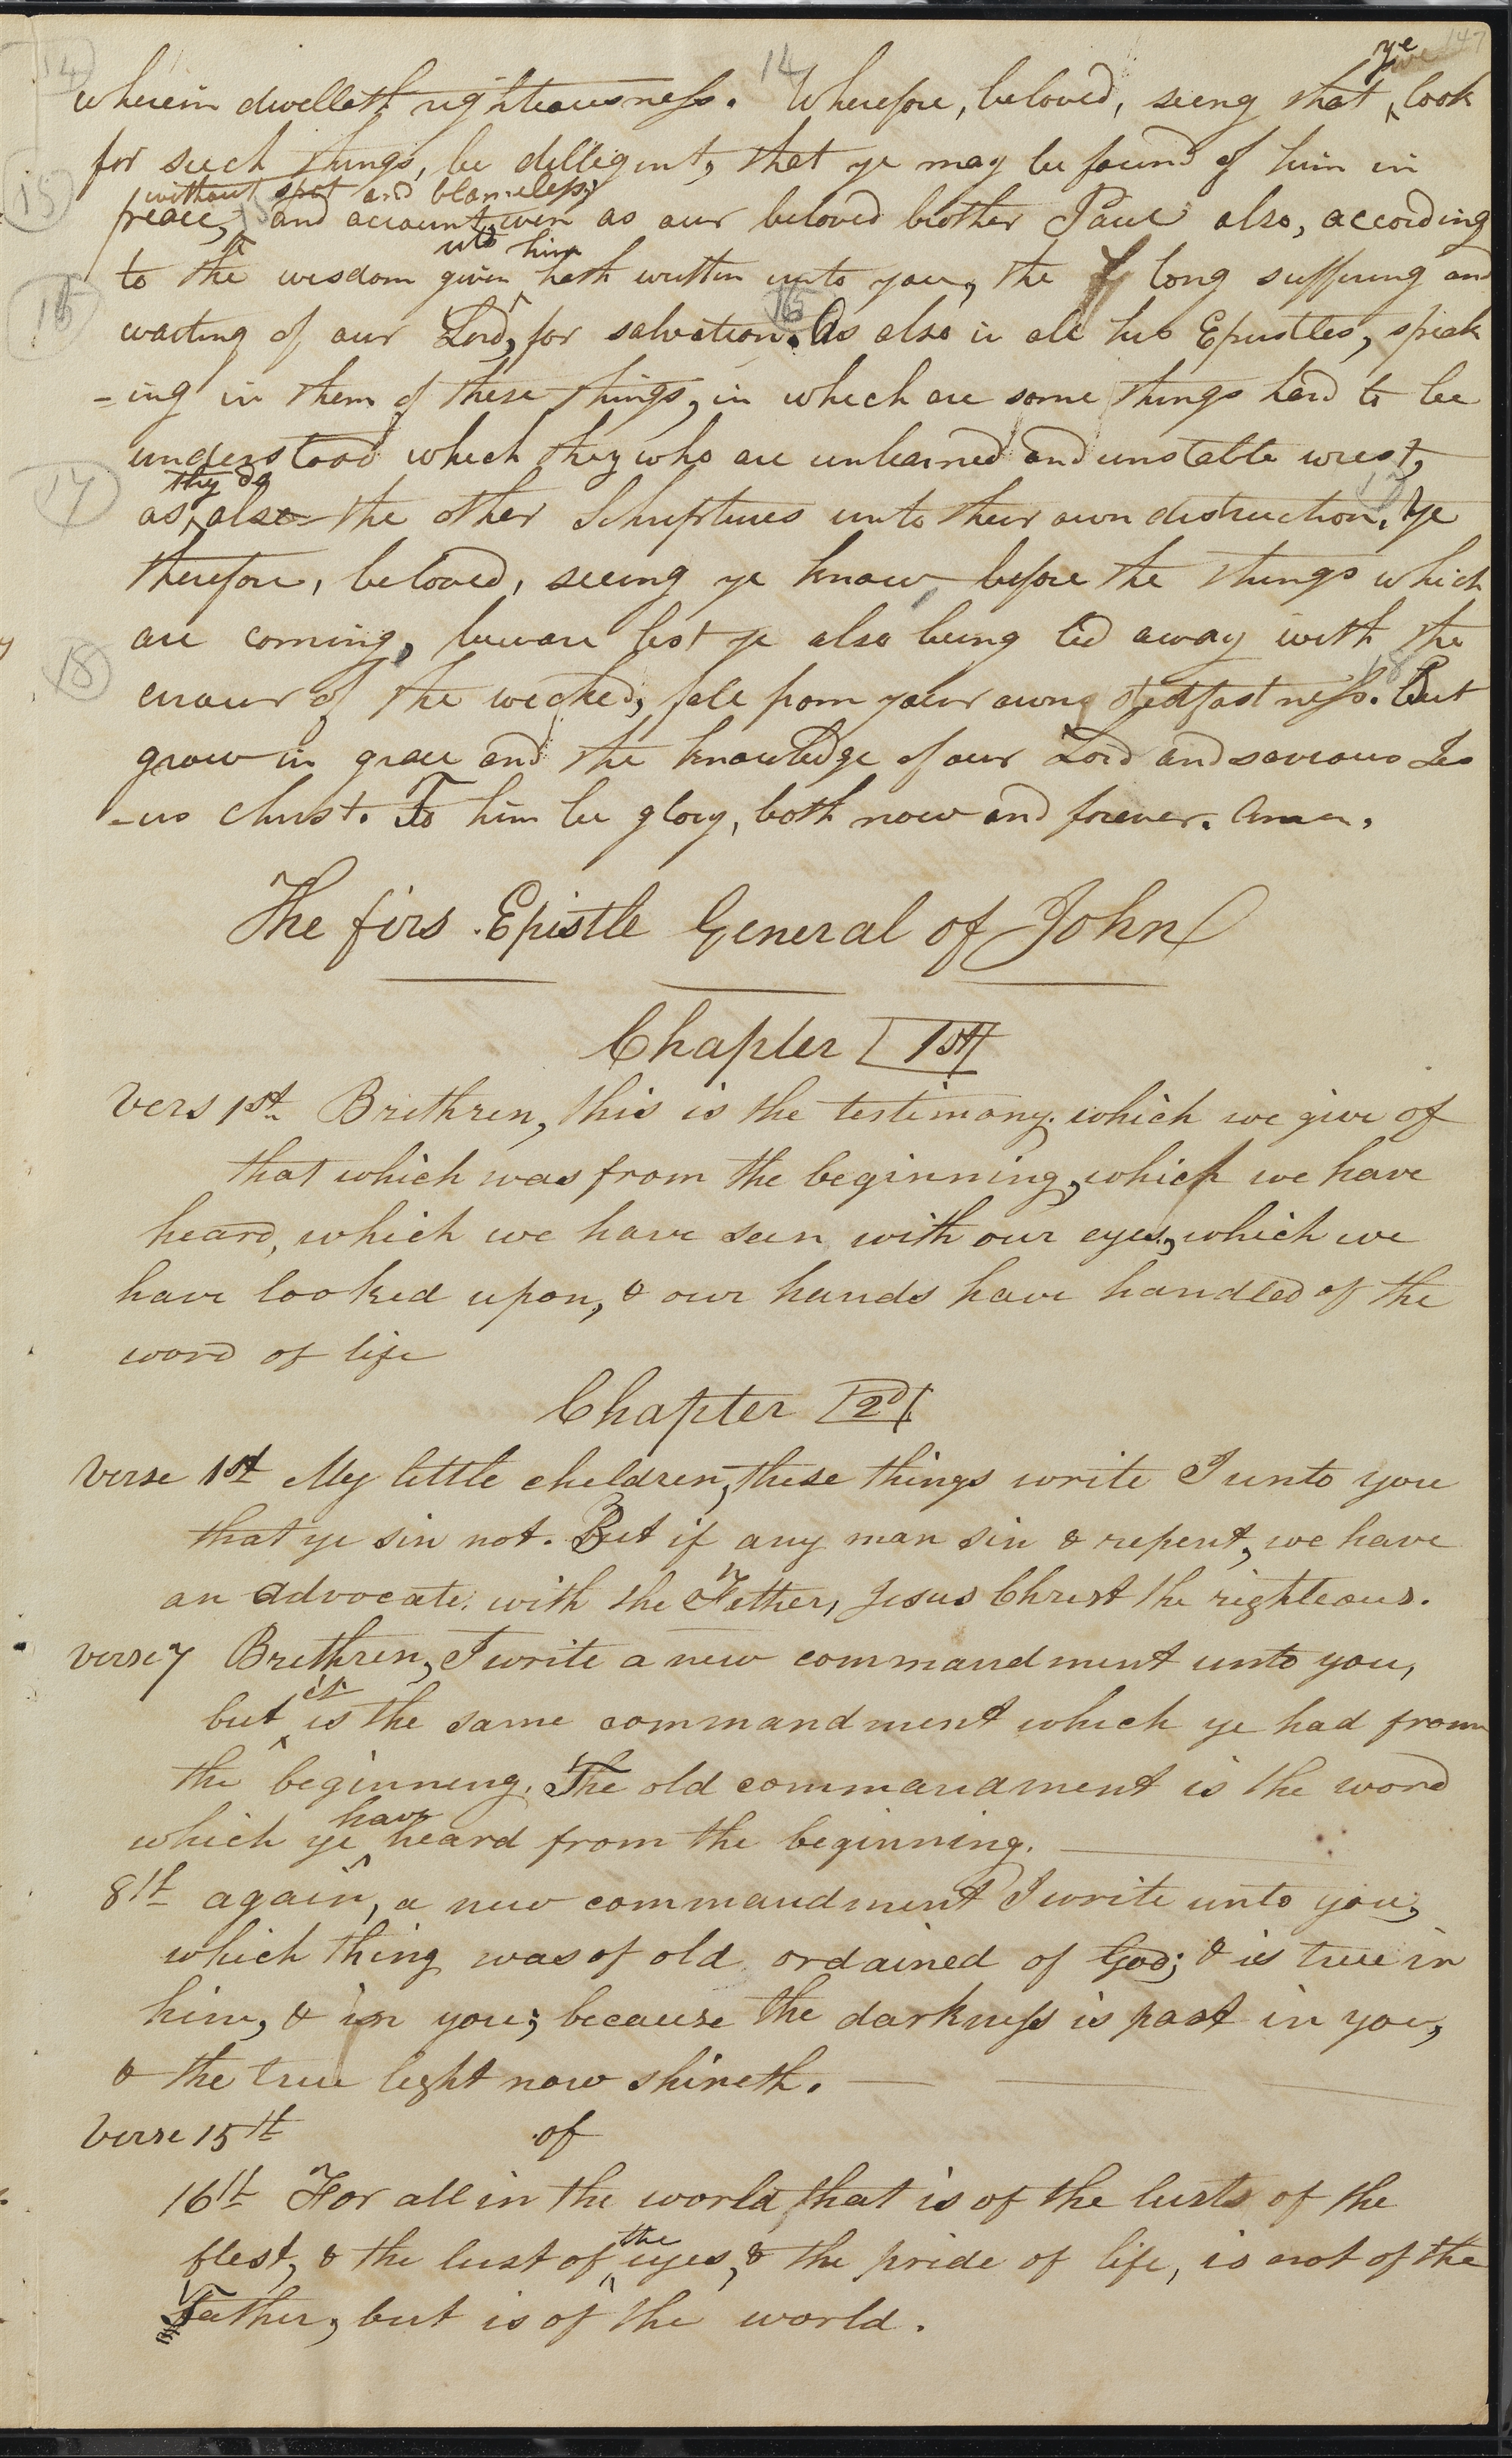 147
wherein dwelleth righteousness. 14 Wherefore, beloved, seeing that ye look
for such things, be dilligent, that ye may be found of him in
peace, without spot and blameless; 15 and account, even as our beloved brother Paul also, according
to the wisdom given unto him hath written unto you, the long suffering and
waiting of our Lord, for salvation. 16 As also in all his Epistles, speak
-ing in them of these things, in which are some things hard to be
understood which they who are unlearned and unstable wrest,
as they do also the other Schriptures unto their own distruction. 17 Ye
therefore, beloved, seeing ye know before the things which
are coming, beware lest ye also being led away with the
errour of the wicked, fall from your own stedfastness. 18 But
grow in grace and the knowledge of our Lord and saviour Jes
-us Christ. To him be glory, both now and forever. Amen.
The firs Epistle General of John
Chapter 1st
Vers 1st Brethren, this is the testimony which we give of
that which was from the beginning, which we have
heard, which we have seen with our eyes, which we
have looked upon, & our hands have handled of the
word of life
Chapter 2d
Verse 1st My little children, these things write I unto you
that ye sin not. But if any man sin & repent, we have
an advocate with the Father, Jesus Christ the righteous.
verse 7 Brethren, I write a new commandment unto you,
but it is the same commandment which ye had from
the beginning. The old commandment is the word
which ye have heard from the beginning.
8th again, a new commandment I write unto you,
which thing was of old ordained of God; & is true in
him, & in you; because the darkness is past in you,
& the true light now shineth.
Verse 15th of
16th For all in the world that is of the lusts of the
flesh, & the lust of the eyes, & the pride of life, is not of the
Father, but is of the world.